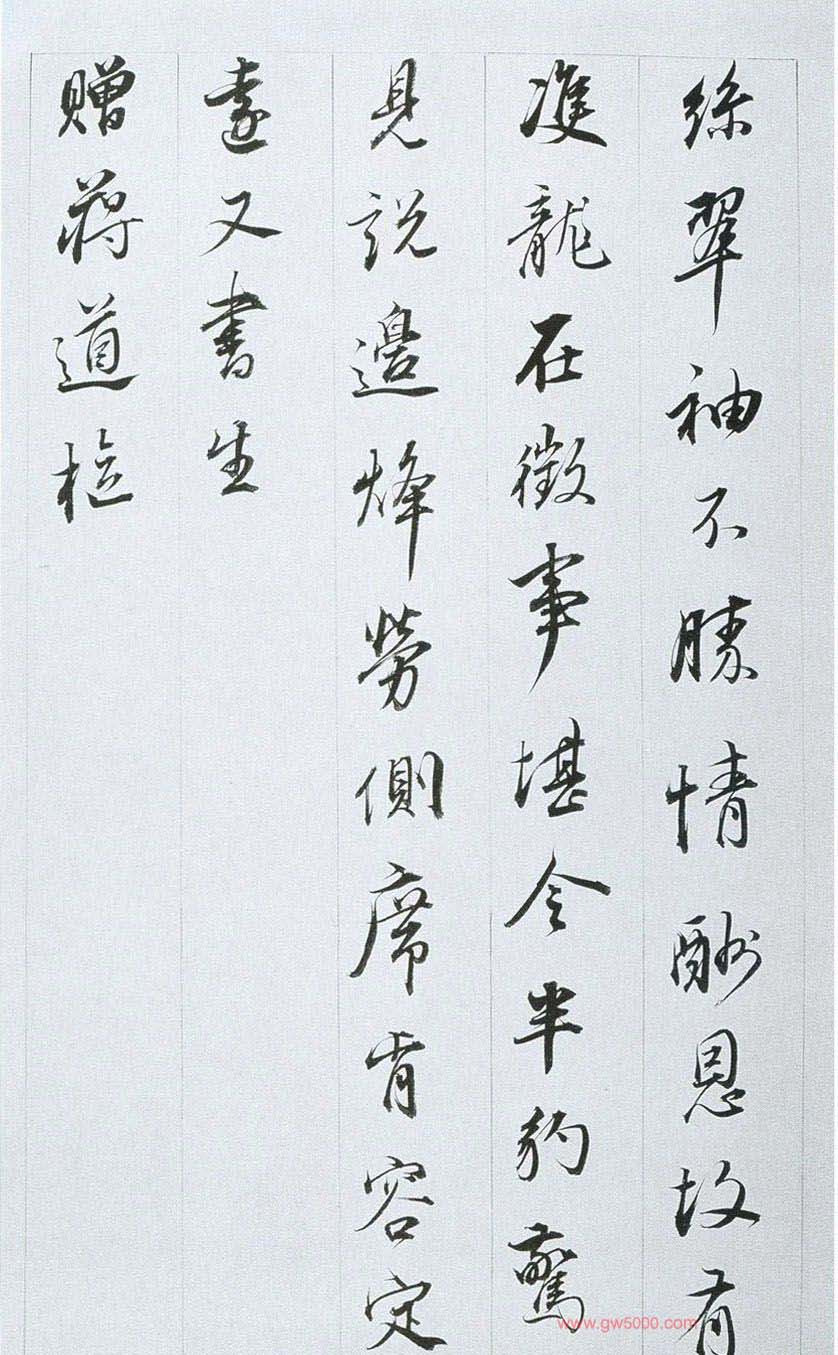 絲翠袖不勝情酬恩故有
雙龍在徵事堪令半豹驚
見說邊烽勞側席肯容定
遠又書生
贈蔣道樞
www.gw5000.com